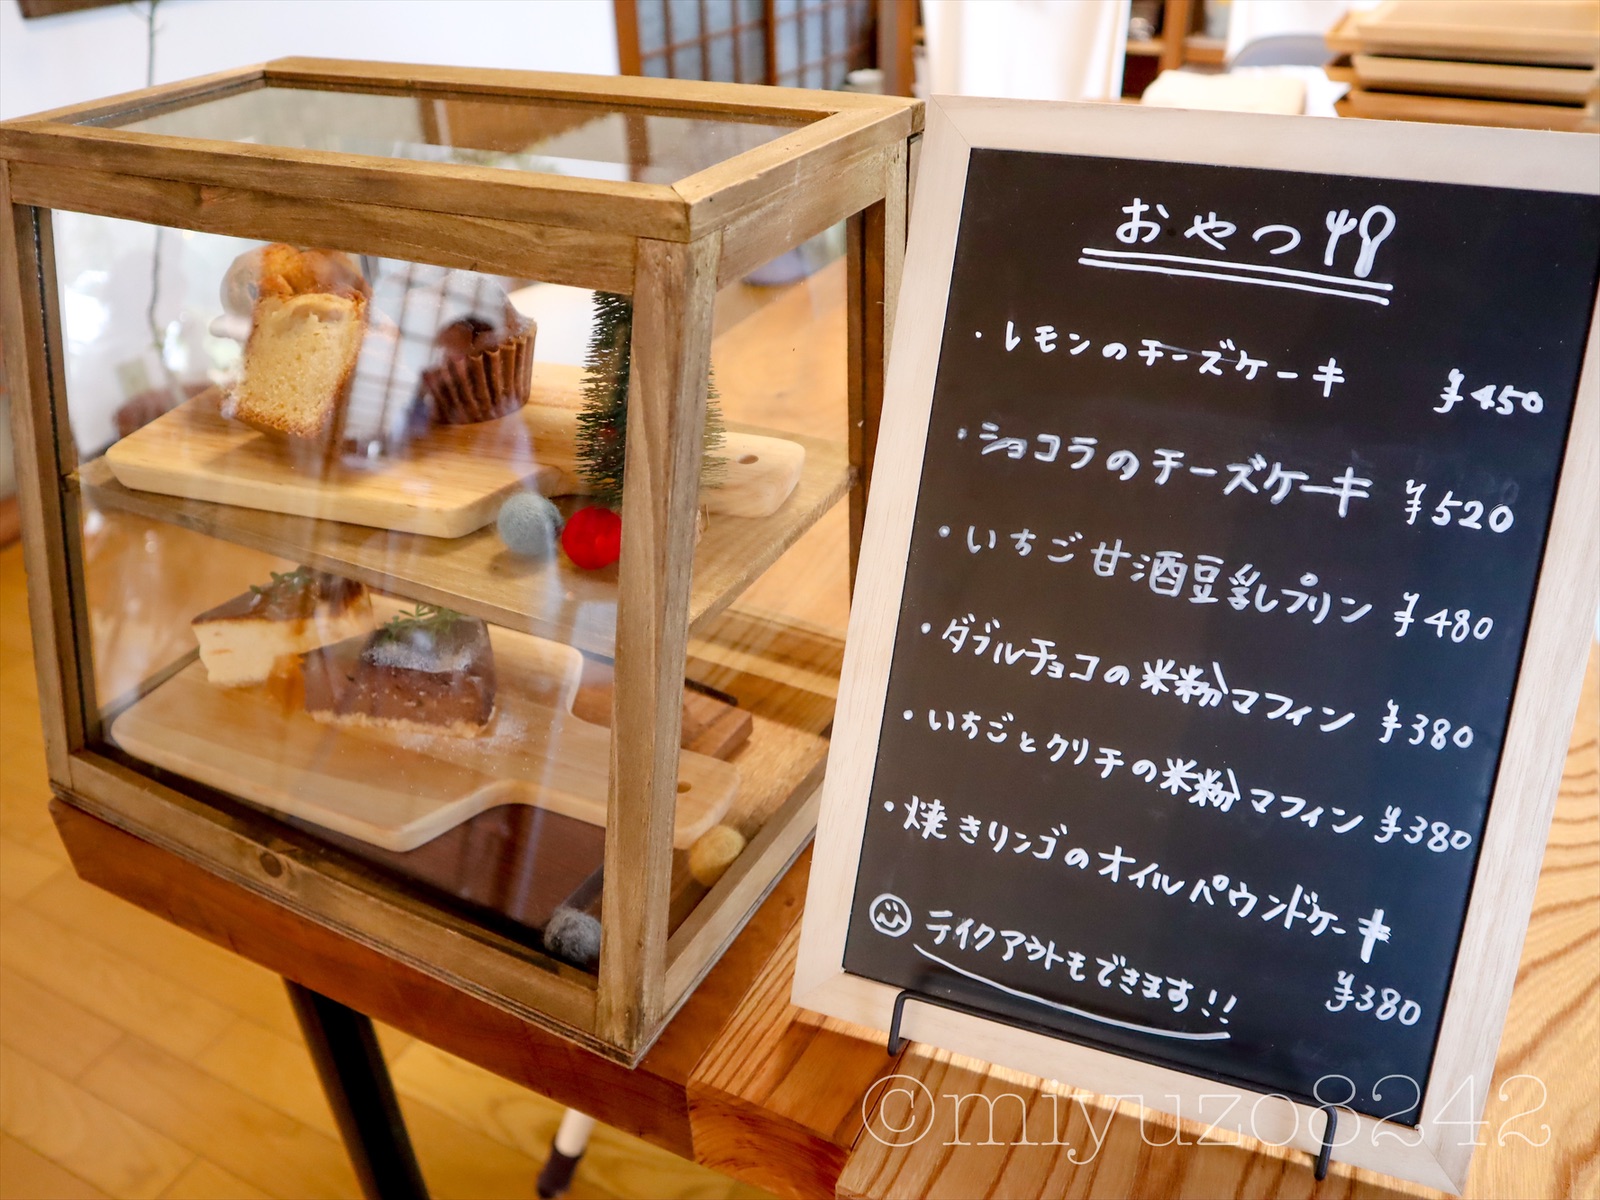 おやつ
・レモンのチーズケーキ ¥450
・ショコラのチーズケーキ ¥520
・いちご甘酒豆乳プリン ¥480
・ダブルチョコの米粉マフィン ¥380
・いちごとクリチの米粉マフィン ¥380
・焼きリンゴのオイルパウンドケーキ
¥380
テイクアウトもできます!!
©miyuzo8242